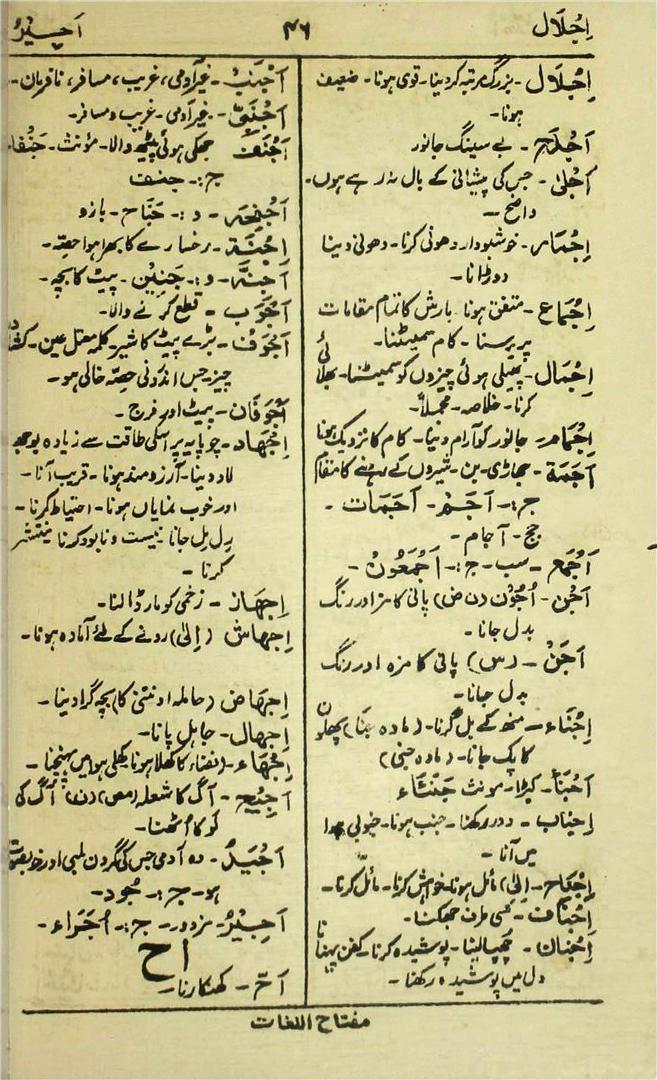 اِجْلَال
۴۶
اَجِیْرٌ
اِجْلَال - بزرگ مرتبہ کر دینا - قوی ہونا - ضعیف
ہونا -
اَجْلَحُ - بے سینگ جانور
اَجْلیٰ - جس کی پیشانی کے بال نہ رہے ہوں -
واضح -
اِجْمَار - خوشبودار دھونی کرنا - دھونی دینا
دوڑانا -
اِجْمَاع - متفق ہونا بارش کا تمام مقامات
پر برسنا - کام سمیٹنا -
اِجْمَال - پھیلی ہوئی چیزوں کو سمیٹنا - بھلائی
کرنا - خلاصہ - مجملاً -
اِجْمَام - جانور کو آرام دینا - کام کا نزدیک ہونا
اَجَمَة - جھاڑی - بن - شیروں کے رہنے کا مقام
ج :- اَجَمْ - اَجَمَات -
جج - آجام -
اَجْمَع - سب - ج :- اَجْمَعُوْنَ -
اَجْن - اُجُوْن (ن ض) پانی کا مزا اور رنگ
بدل جانا -
اَجَنْ - (س) پانی کا مزہ اور رنگ
بدل جانا -
اِجْنَاء - منھ کے بل گرنا - (مادہ جنا) پھلوں
کا پک جانا - (مادہ جنی)
اَجْنَأ - کبڑا - مونث جَنْئَاء
اِجْنَاب - دور رکھنا - جنب ہونا - جنوبی ہوا
میں آنا -
اِجْنَاح - (الیٰ) مائل ہونا - خواہش کرنا - مائل کرنا -
اِجْنَاف - کسی طرف جھکنا -
اِجْنَان - چھپا لینا - پوشیدہ کرنا - کفن پہنانا
دل میں پوشیدہ رکھنا -
اَجْنَبْ - غیر آدمی، غریب، مسافر، نافرمان -
اَجْنَبِیّ - غیر آدمی - غریب و مسافر -
اَجْنَفْ جھکی ہوئی پیٹھ والا - مؤنث - جَنْفَاء
ج :- جنف
اَجْنِحَه - و :- جَنَاح - بازو
اِجْنَة - رخسارے کا بھرا ہوا حصّہ -
اَجِنَّة - و :- جَنِیْن - پیٹ کا بچہ -
اَجْوَب - قطع کرنے والا -
اَجْوَف - بڑے پیٹ کا شیر - کلمہ معتل عین - کشادہ
چیز جس اندرونی حصّہ خالی ہو -
اَجْوَفَان - پیٹ اور فرج -
اِجْهَاد - چوپایہ پر اسکی طاقت سے زیادہ بوجھ
لاد دینا - آرزومند ہونا - قریب آنا -
اور خوب نمایاں ہونا - احتیاط کرنا -
رِل مِل جانا نیست و نابود کرنا منتشر
کرنا -
اِجْهَاز - زخمی کو مار ڈالنا -
اِجهاش (الیٰ) رونے کے لئے آمادہ ہونا -
اِجهَاض (حاملہ اونٹنی کا) بچہ گرا دینا -
اِجهَال - جاہل پانا -
اِجْهَاء - (فضاء کا کھلا ہونا) کھلی ہوا میں پہنچنا -
اَجِیْج - آگ کا شعلہ (مص) (ن) آگ کی
لو کا اُٹھنا -
اَجْیَدُ - وہ آدمی جس کی گردن لمبی اور خوبصورت
ہو - ج :- جُود -
اَجِیْرٌ - مزدور - ج :- اُجَرَاء -
اح
اَحّ - کھنکارنا -
مفتاح اللغات